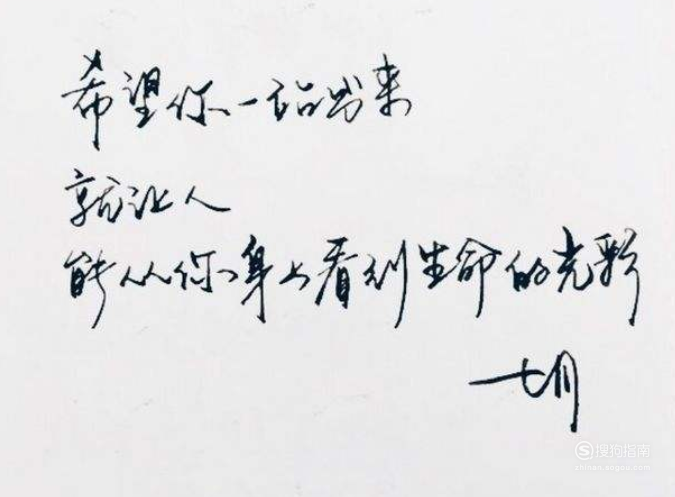 希望你一站出来
就让人
能从你身上看到生命的光彩
七月
S搜狗指南
zhinan.sogou.com